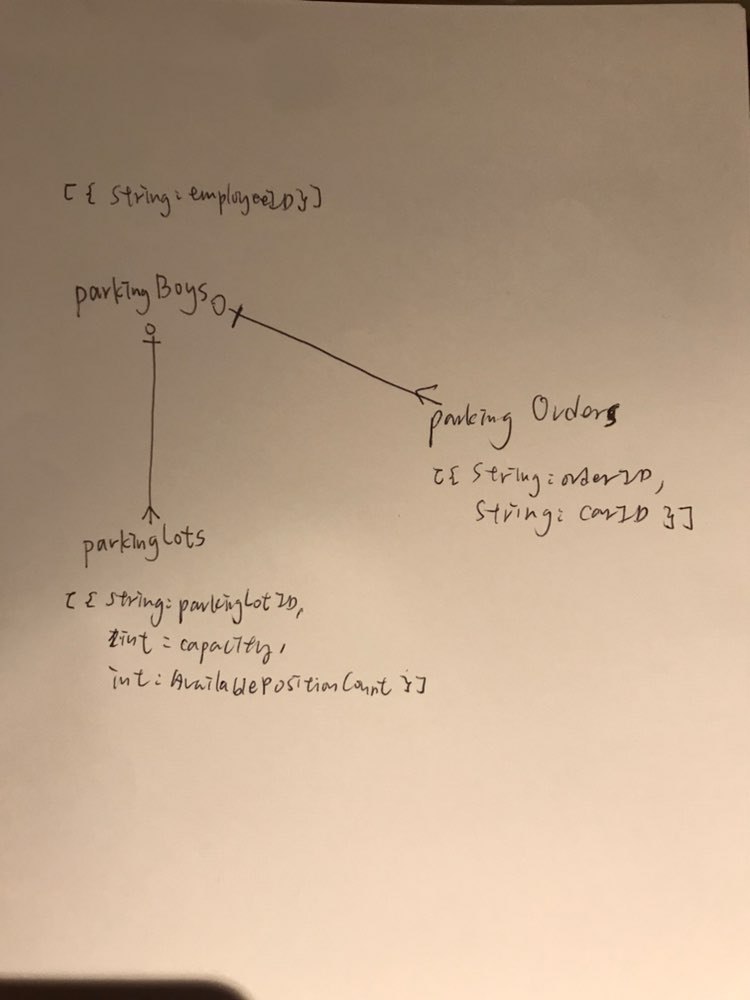 [{ String: employeeID }]
parkingBoys
parking Orders
[{ String: orderID,
String: carID }]
parkingLots
[{ String: parkingLotID,
int: capacity,
int: AvailablePositionCount }]